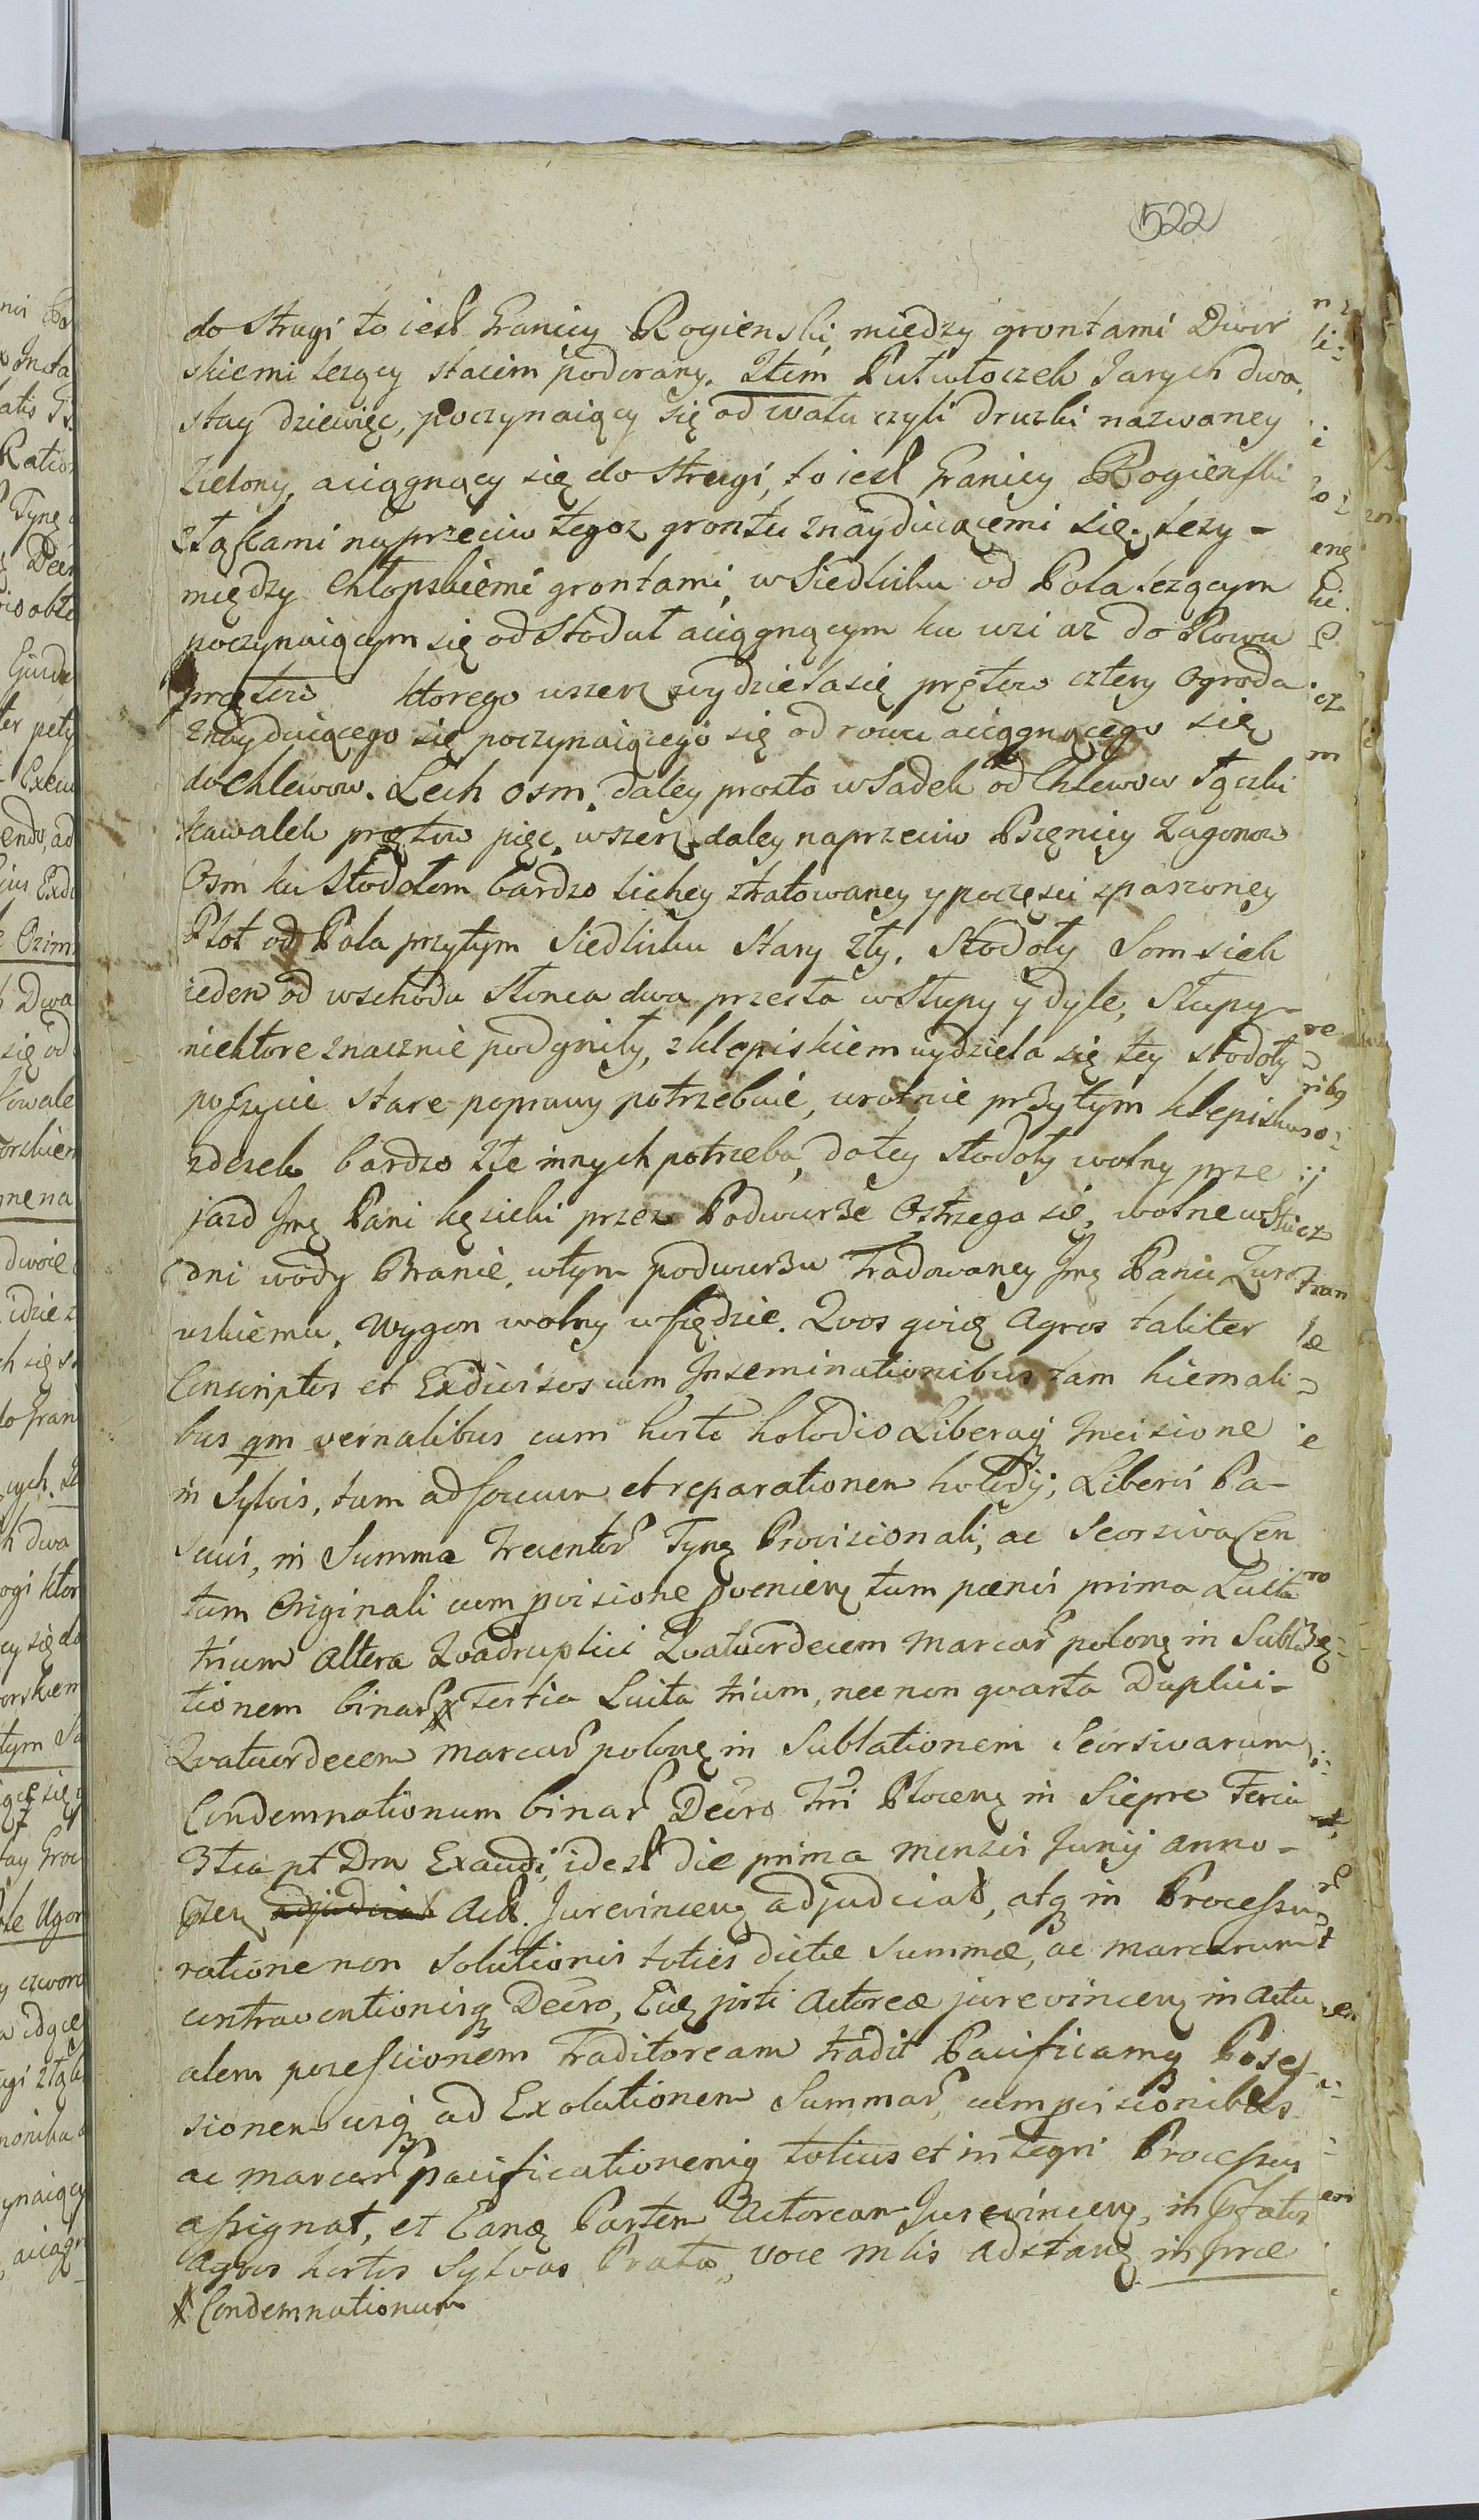 522
do Strugi to iest Granicy Rogienski, między grontami Dwor
skiemi lezący stacim podorany. Item Pułwłoczek Jarych dwa
stay dziewięc, poczynaiący się od wału czyli druzki nazwaney
Zielony, aciągnący się do Strugi, to iest Granicy Rogienski
złąkami naprzeciw tegoz grontu znayduiącemi się. lezy -
między Chłopskiemi grontami, w Siedlisku od Pola lezącym
poczynaiącym się od Stoduł aciągnącym ku wsi az do Rowu
prętow ktorego wszerz wydziela się prętow cztery Ogroda
znayduiącego się poczynaiącego się od rowu aciągnącego się
do Chlewow. Lech Osm, daley prosto w Sadek od Chlewow łączki
kawalek prętow pięc, wszerz daley naprzeciw Pszenicy Zagonow
Osm ku Stodołom bardzo lichey ztratowaney y poczęsci spaszoney
Płot od Pola przytym Siedlisku Stary zły. Stodoły Somsiek
ieden od wschodu Słonca dwa przesła w Słupy y dyle, Słupy -
niektore znacznie podgniły, z klepiskiem wydziela się tey stodoły
poszycie stare poprawy potrzebuie, wrotnie przytym klepisku
zdesek bardzo złe innych potrzeba, do tey stodoły wolny prze
jazd Jmę Pani Kęsicki przez Podwurze Ostrzega się, wolne w Stu
dni wody Branie, wtym podwurzu Tradowaney Jmę Panu Zuro
wskiemu. Wygon wolny wszędzie. Qvos qvidę Agros taliter
Conscriptos et Exdivisos cum Inseminationibus tam hiemali
bus qm vernalibus cum horto holodio Liberaq Incisione
in Sylvis, tum ad focum et reparationem holodij; Liberis Pa-
scuis, in Summa trecentor Tynę Provisionali, ac Seorsiva Cen
tum Originali cum pvisione pvenienę tum pænis prima Luita
trium altera Qvadruplici Qvatuordecem Marcar polonę in Subla
tionem binar X Tertia Luita trium, nec non qvarta Duplici -
Qvatuordecem marcar polonę in Sublationem Seorsivarum
Condemnationum binar Decro Tri Plocenę in Siepre Feria
3tia pt Dm Exaudi, idest die prima mensis Junij anno -
pzen adjudicat Act. Jurevincenę adjudciat, atq in Processu
ratione non Solutionis toties dictæ Summæ, ac marcarum
contraventionisq Decro, Eidę prti Actoreæ jurevincenę in actu
alem possessionem Traditoream tradit Pacificamq Poses
sionem usq ad Exolutionem Summar, cum pvisionibus
ac marcar pacificationemq totius et integri Processus
assignat, et Eandę Partem Actoream Jurevincenę, in pfatos
Agros hortos Sylvas Prata, voce mlis adstanę in præ
X Condemnationum